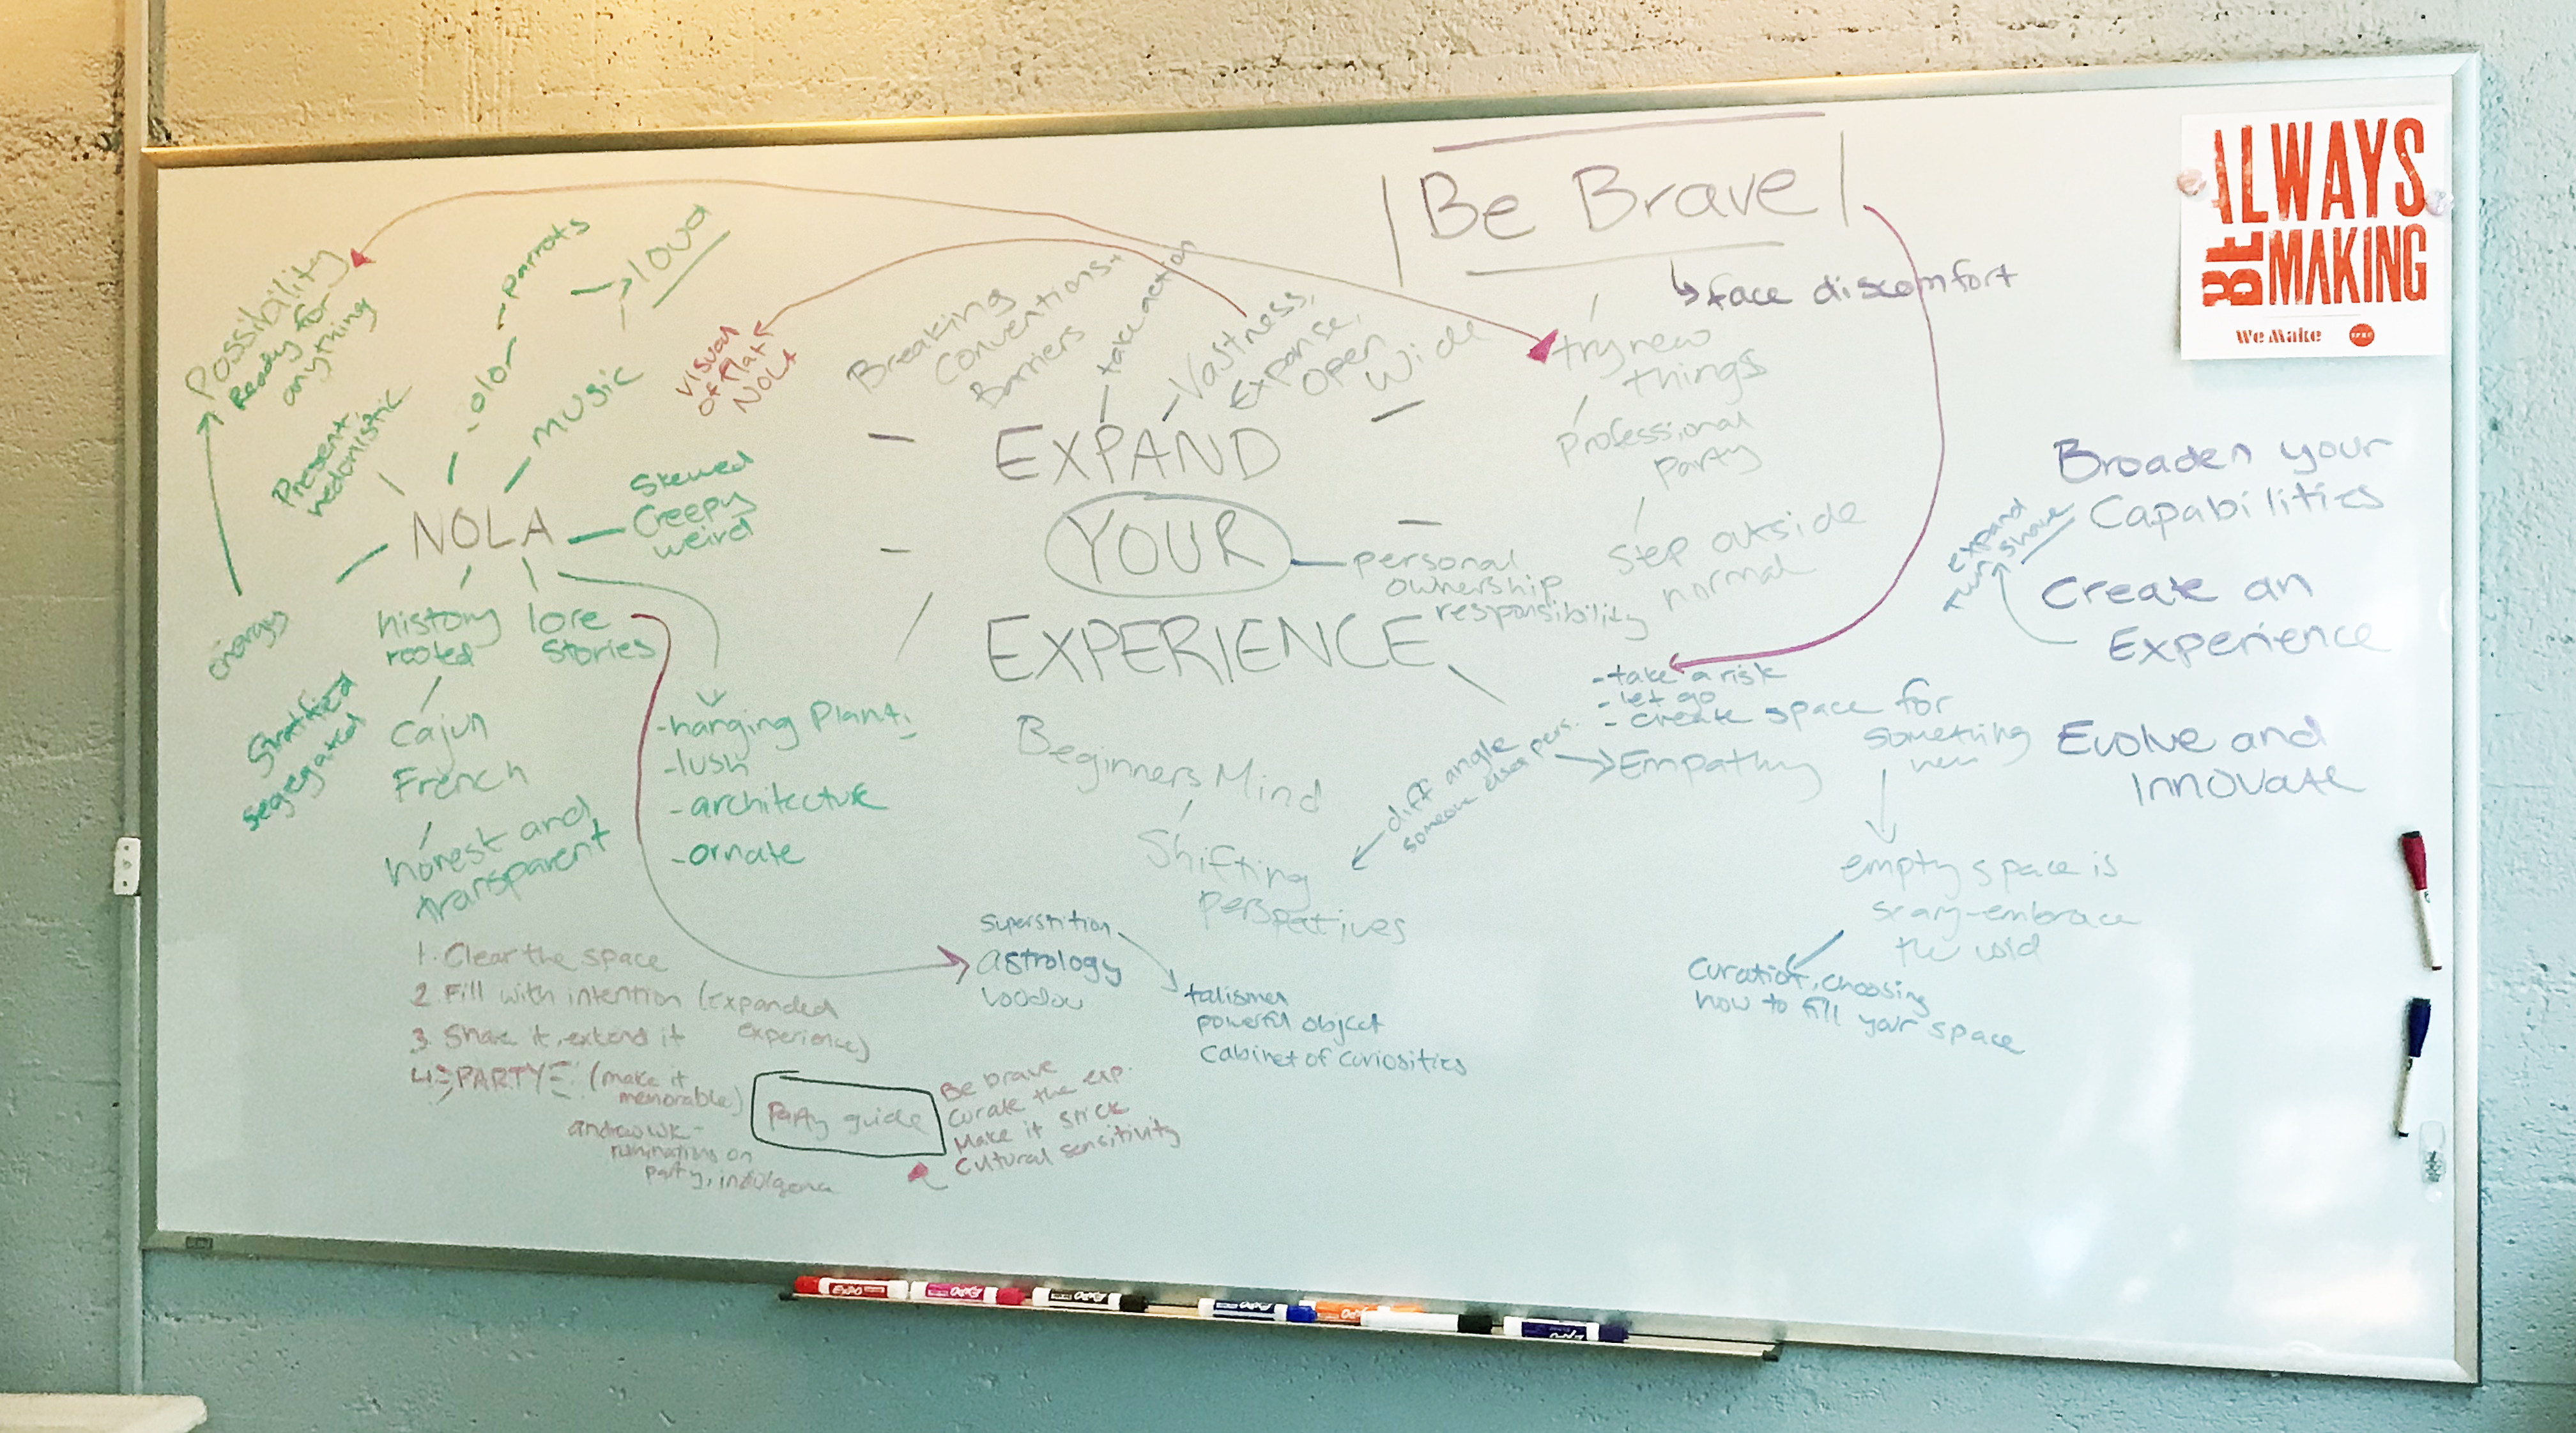 Possibility
Ready for
anything
Present
hedonistic
color - parrots
music
loud
NOLA
Skewed
Creepy
weird
energy
history
rooted
lore
stories
Stratified
segregated
Cajun
French
honest and
transparent
-hanging Plants
-lush
-architecture
-ornate
visual
of flat
NOLA
Breaking
Conventions,
Barriers
take action
Vastness,
Expanse,
Open
Wide
EXPAND
YOUR
EXPERIENCE
personal
ownership
responsibility
Beginners Mind
Shifting
perspectives
diff angle
someone elses pers.
Empathy
Be Brave
face discomfort
try new
things
professional
party
step outside
normal
-take a risk
-let go
-create space for
something
new
empty space is
scary-embrace
the void
Curation, choosing
how to fill your space
superstition
astrology
voodoo
talisman
powerful object
Cabinet of curiosities
1. Clear the space
2. Fill with intention (Expanded
experience)
3. Share it, extend it
4. PARTY! (make it
memorable)
andrew wk-
ruminations on
party, indulgence
Party guide
Be brave
Curate the exp.
Make it stick
Cultural sensitivity
Broaden your
Capabilities
expand
share
Create an
Experience
Evolve and
Innovate
ALWAYS
BE MAKING
We Make
EXPO